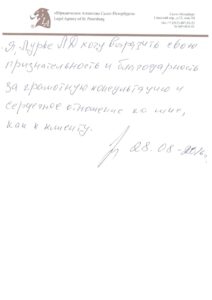 «Юридическое Агентство Санкт-Петербурга»
Legal Agency of St. Petersburg
Санкт-Петербург
Я, Лурье ЛД хочу выразить свою
признательность и благодарность
за грамотную консультацию и
сердечное отношение ко мне,
как к клиенту.
28.08